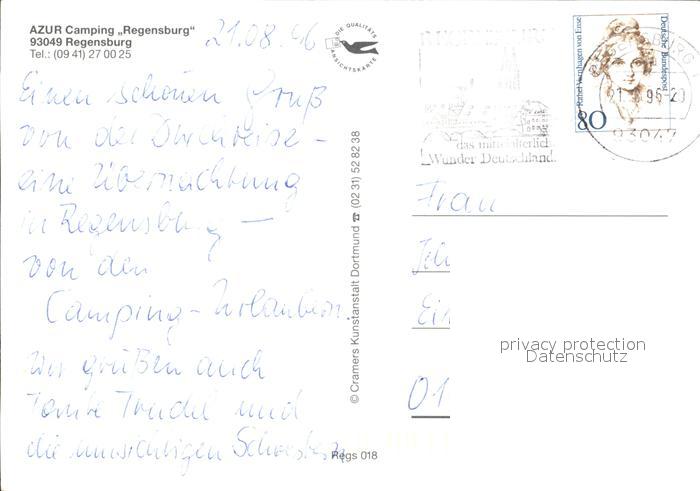 AZUR Camping „Regensburg“
93049 Regensburg
Tel.: (09 41) 27 00 25
21.08.96
DIE QUALITÄTS
ANSICHTSKARTE
Einen schönen Gruß
von der Durchreise –
eine Übernachtung
in Regensburg —
von den
Camping-Urlaubern.
Wir grüßen auch
Tante Trudel und
die
© Cramers Kunstanstalt Dortmund ☎ (02 31) 52 82 38
Regs 018
REGENSBURG
das mittelalterlich
Wunder Deutschland
Rahel Varnhagen von Ense
Deutsche Bundespost
80
REGENSBURG
93047
Frau
Ei
01
privacy protection
Datenschutz